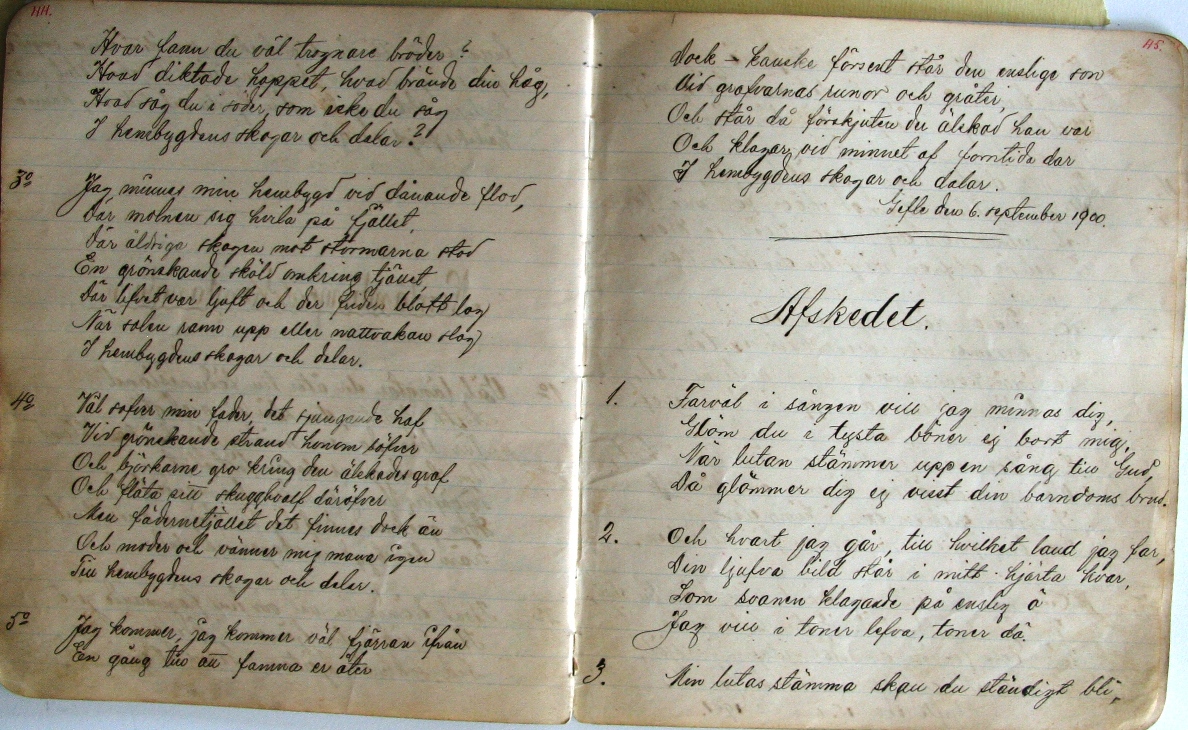 44.
Hvar fann du väl trognare bröder?
Hvad diktade hoppet, hvad brände din håg,
Hvad såg du i söder, som icke du såg
I hembygdens skogar och dalar?
3o
Jag minnes min hembygd vid dånande flod,
Där molnen sig hvila på fjället,
Där åldriga skogen mot stormarna stod
En grönskande sköld omkring tjället,
Där lifvet var ljuft och der friden blott log
När solen rann upp eller nattvakan slog
I hembygdens skogar och dalar.
4o
Väl sofver min fader, det sjungande haf
Vid grönskande strand honom söfver
Och björkarne gro kring den älskades graf
Och fläta sitt skugghvalf däröfver
Men fädernetjället det finnes dock än
Och moder och vänner mig mana igen
Till hembygdens skogar och dalar.
5o
Jag kommer, jag kommer väl fjärran ifrån
En gång till att famna er åter
45.
Dock - kanske försent står den enslige son
Vid grafvarnas runor och gråter,
Och står då förskjuten der älskad han var
Och klagar vid minnet af forntida dar
I hembygdens skogar och dalar.
Gefle den 6. september 1900.
Afskedet.
1.
Farväl i sången vill jag minnas dig,
Glöm du i tysta böner ej bort mig,
När lutan stämmer uppen sång till Gud
Då glömmer dig ej visst din barndoms brud.
2.
Och hvart jag går, till hvilket land jag far,
Din ljufva bild står i mitt hjärta kvar,
Som svanen klagande på enslig ö
Jag vill i toner lefva, toner dö.
3.
Min lutas stämma skall du ständigt bli,